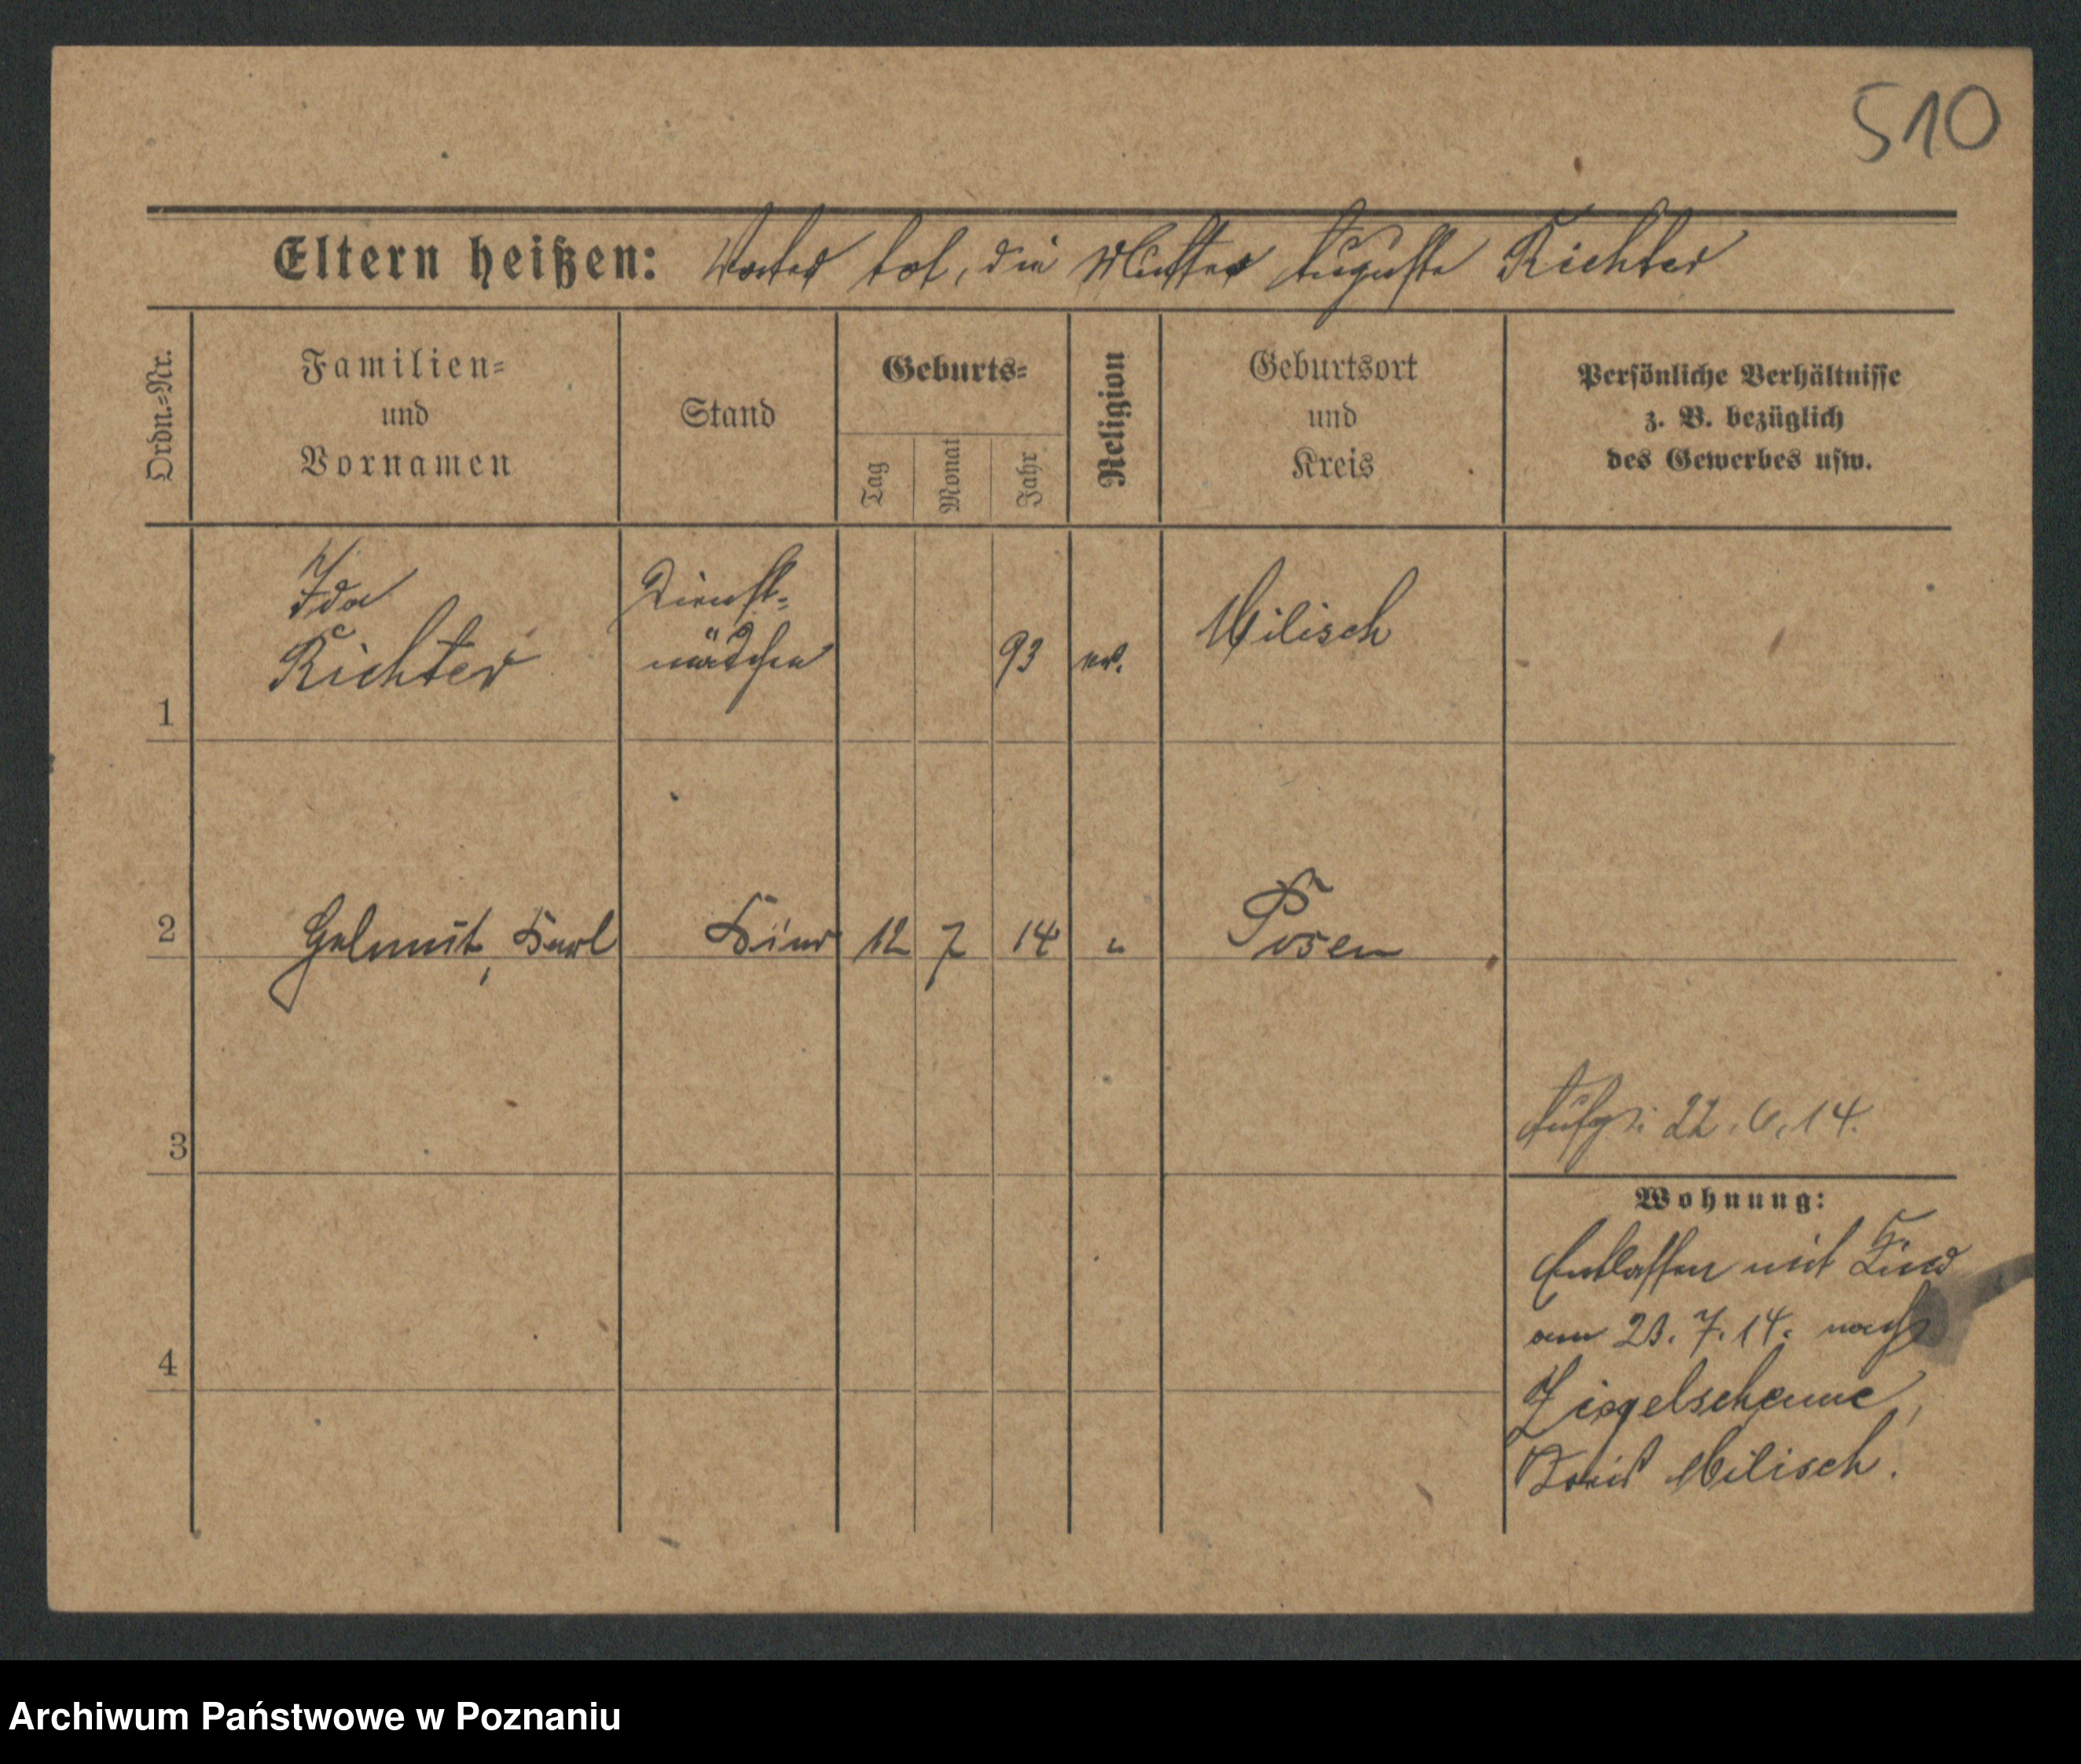 510
Eltern heißen: Vater tot, die Mutter Auguste Richter
Ordn.=Nr.
Familien=
und
Vornamen
Stand
Geburts=
Tag
Monat
Jahr
Religion
Geburtsort
und
Kreis
Persönliche Verhältnisse
z. B. bezüglich
des Gewerbes usw.
1
Ida
Richter
Dienst=
mädchen
93
ev.
Milisch
2
Helmut, Karl
Kind
12
7
14
"
Posen
3
Aufg: 22.6.14.
Wohnung:
Entlassen mit Kind
am 23.7.14. nach
Ziegelscheune,
Kreis Milisch.
4
Archiwum Państwowe w Poznaniu